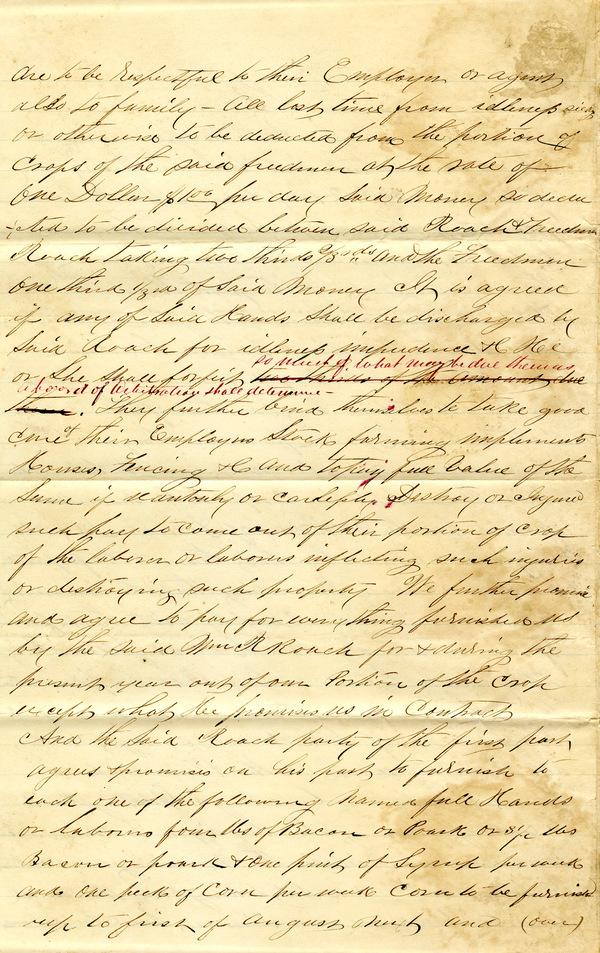 are to be respectful to their Employer or agent
also to family - All lost time from idleness sick
or otherwise to be deducted from the portion of
Crops of the said freedmen at the rate of
One Dollar $1.00 per day Said Money so dedu
cted to be divided between said Roach & Freedmen
Roach taking two thirds 2/3ds and the Freedmen
One third 1/3rd of Said Money It is agreed
if any of Said Hands Shall be discharged by
Said Roach for idleness impudence &c He
so much of what may be due them as
or She Shall forfeit two thirds of the amount due
a board of Arbitration shall determine -
them. They further bind themselves to take good
care of their Employers Stock farming implements
Houses, Fencing &c and to pay full Value of the
Same if wantonly or carelessly Destroy or Injured
such pay to come out of their portion of crop
of the laborer or laborers inflicting such injuries
or destroying such property We further promise
and agree to pay for everything furnished us
by the said Wm R Roach for & during the
present year out of our Portion of the Crop
except what he promises us in Contract
And the Said Roach party of the first part
agrees & promises on his part to furnish to
each one of the following Named full Hands
or laborers four lbs of Bacon or Poark or lbs
Bacon or poark & One pint of Syrup per week
and One peck of Corn per week Corn to be furnish
up to first of August Next and (over)